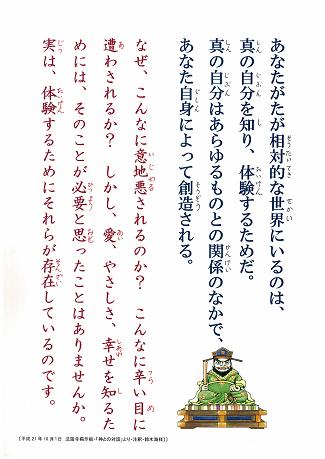 あなたがたが相対的な世界にいるのは、
真の自分を知り、体験するためだ。
真の自分はあらゆるものとの関係のなかで、
あなた自身によって創造される。
なぜ、こんなに意地悪されるのか? こんなに辛い目に
遭わされるか? しかし、愛、やさしさ、幸せを知るた
めには、そのことが必要と思ったことはありませんか。
実は、体験するためにそれらが存在しているのです。
(平成21年10月1日 掲示板・「神との対話」より・注釈・鈴木海祥)